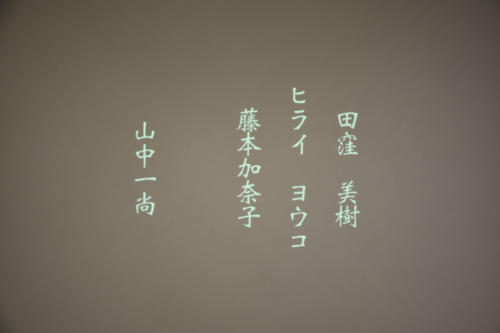 田窪 美樹
ヒライ ヨウコ
藤本加奈子
山中一尚